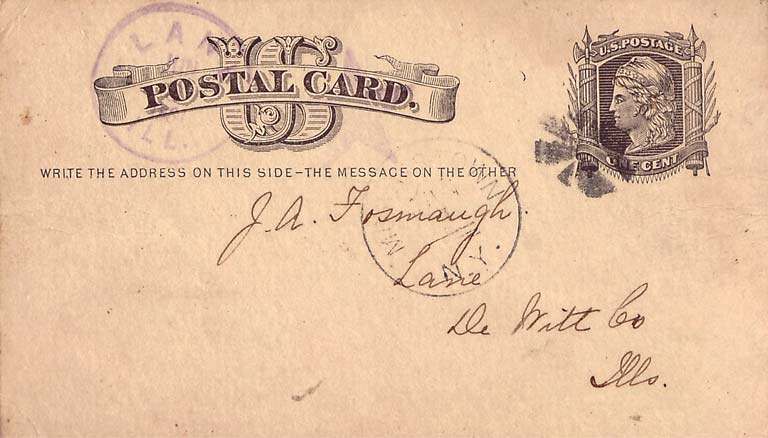 LANE
ILL.
US
POSTAL CARD.
U.S. POSTAGE
ONE CENT
WRITE THE ADDRESS ON THIS SIDE–THE MESSAGE ON THE OTHER
N.Y.
J. A. Fosmaugh.
Lane
De Witt Co
Ills.